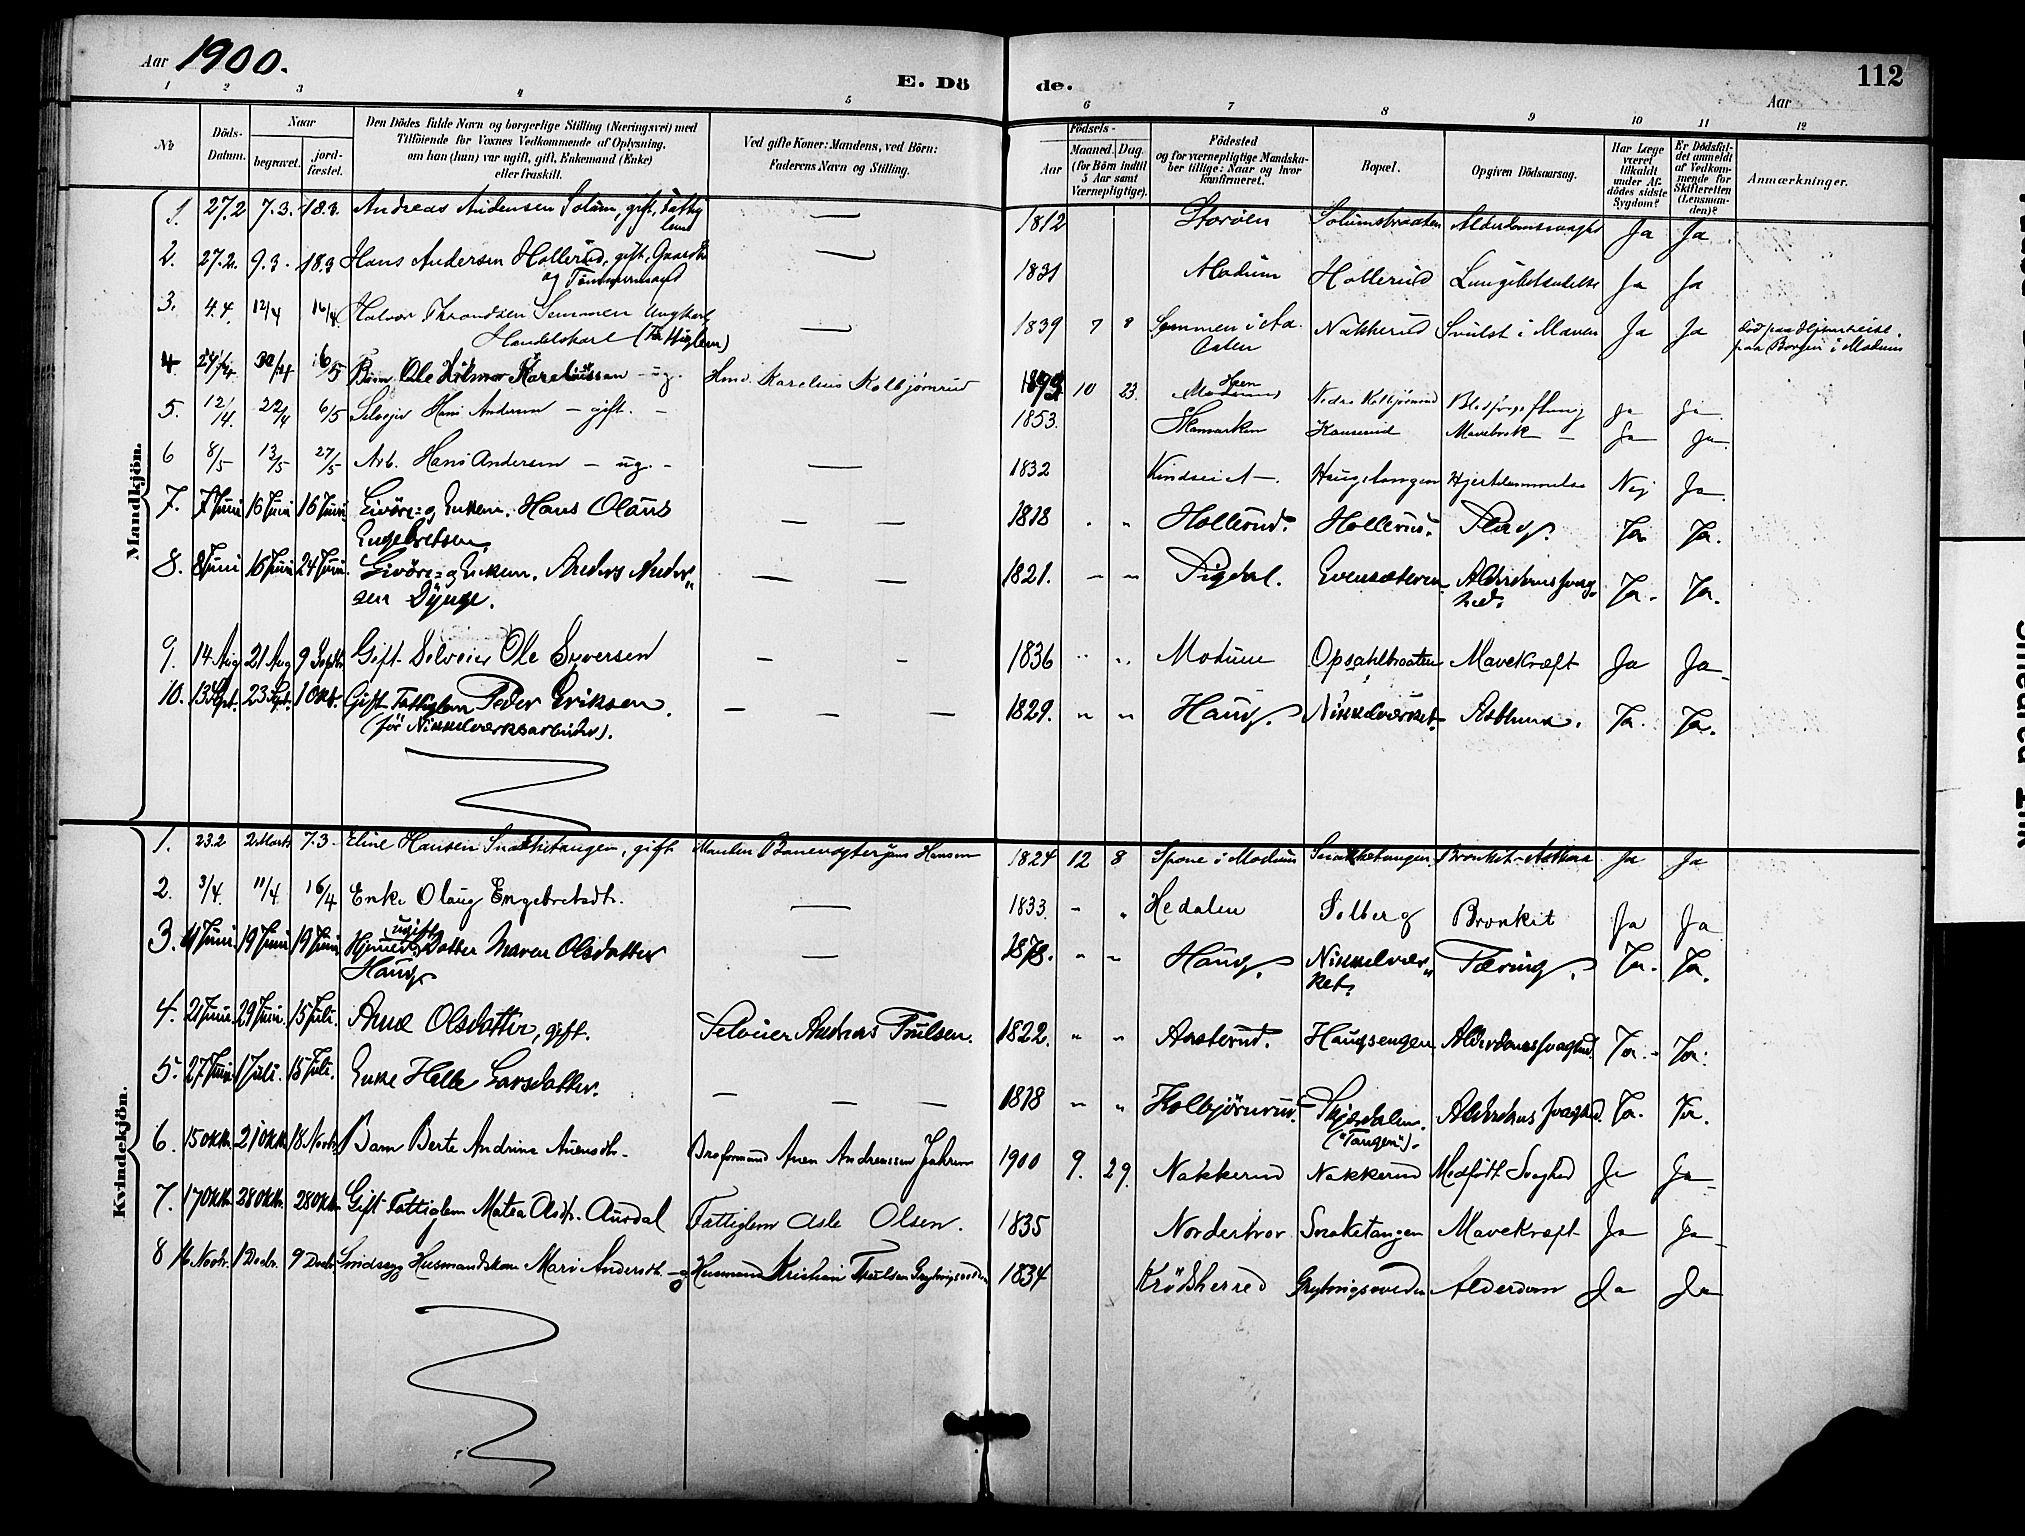 Aar 1900.
E. Dö de.
112
Aar
1 2 3 4 5 6 7 8 9 10 11 12
No
Döds-Datum.
Naar
begravet.
jord-fæstet.
Den Dödes fulde Navn og borgerlige Stilling (Næringsvei) med
Tilföiende for Voxnes Vedkommende af Oplysning,
om han (hun) var ugift, gift, Enkemand (Enke)
eller fraskilt.
Ved gifte Koner: Mandens, ved Börn:
Faderens Navn og Stilling.
Födsels-
Aar
Maaned. Dag.
(for Börn indtil
5 Aar samt
Værnepligtige).
Födested
og for værnepligtige Mandska-
ber tillige: Naar og hvor
konfirmeret.
Bopæl.
Opgiven Dödsaarsag.
Har Læge
været
tilkaldt
under Af-
dödes sidste
Sygdom?
Er Dödsfal-
det anmeldt
af Vedkom-
mende for
Skifteretten
(Lensman-
den)?
Anmærkninger.
Mandkjön.
1. 27.2 7.3. 18.3 Andreas Andersen Solum, gift, Fattiglem — 1812 Storöen Solumsbraaten Alderdomssvaghed Ja Ja
2. 27.2. 9.3. 18.3 Hans Andersen Hollerud, gift, Gaardbr.
og Tömmermand — 1831 Modum Hollerud Lungebetændelse Ja Ja
3. 4.4. 12/4 16/4 Halvor Throndsen Semmen Ungkarl,
Handelskarl (Fattiglem) — 1839 7 8 Semmen i Aa-
dalen Nakkerud Svulst i Maven Ja Ja död paa Hjemreise
paa Borgen i Modum
4. 24/4 30/4 6/5 Barn Ole Hilmar Kareliussen - ug. Hmd. Karelius Kolbjørnrud 1899 10 23. Modum Nedre Kolbjørnrud Blodforgiftning Ja Ja
5. 12/4. 22/4 6/5 Selveier Hans Andersen - gift. - 1853. Skamarken Mavebrok - Ja Ja
6 8/5 13/5 27/5 Arb. Hans Andersen - ug. - — 1832 Nej Ja
7. 7 Juni 16 Juni 16 Juni Livöre- og Enkem. Hans Olaus
Engebretsen. — — 1818 " " Hollerud. Hollerud. Slag. Ja Ja.
8. 8 Juni 16 Juni 24 Juni. Livöre- og Enkem. Anders Ander-
sen Dynge. — — 1821. " " Sigdal. Evensæteren Alderdomssvag-
hed. Ja. Ja.
9. 14 Aug 21 Aug 9 Septbr Gift Selveier Ole Syversen — - 1836 " " Modum Opsahlbraaten Mavekræft Ja Ja
10. 13 Sept. 23 Sept. 1 Okt. Gift Fattiglem Peder Eriksen.
(för Nikkelværksarbeider). — — — 1829. " " Haug. Nikkelværket. Asthma. Ja. Ja.
Kvindekjön.
1. 23.2 2 Marts 7.3. Eline Hansen Snakketangen, gift Manden Banevogter Jens Hansen 1824 12 8 Spone i Modum Snakketangen Bronkit-Asthma Ja Ja
2. 3/4. 11/4 16/4 Enke Olaug Engebretsdtr. — 1833. - " Hedalen Solberg Bronkit Ja Ja
3. 11 Juni. 19 Juni 19 Juni ugift
Hjemev. Datter Maren Olsdatter
Haug — 1878. " " Haug. Nikkelvær-
ket. Tæring. Ja. Ja.
4. 21 Juni. 29 Juni. 15 Juli. Anne Olsdatter, gift. Selveier Andreas Paulsen. 1822. " " Aasterud. Haugsengen Alderdomssvaghed. Ja. Ja.
5. 27 Juni. 1 Juli. 15 Juli. Enke Helle Larsdatter. — — — 1818 " " Kolbjörnrud. Skjærdalen.
("Tangen"). Alderdomssvaghed. Ja. Ja.
6. 15 Oktbr. 21 Oktbr. 18 Novbr. Barn Berte Andrine Auensdtr. Auen Andreassen 1900 9. 29. Nakkerud Nakkerud Medfödt Svaghed Ja Ja
7. 17 Oktbr. 28 Oktbr. 28 Oktbr. Gift Fattiglem Matea Olsdtr. Aurdal Fattiglem Asle Olsen. 1835 Norderhov Snaketangen Mavekræft Ja Ja
8 16 Novbr. 1 Decbr. 9 Decbr. Sindssyg Husmandskone Mari Andersdtr. Husmand Kristian Paulsen 1834 Krödsherred Alderdom Ja Ja